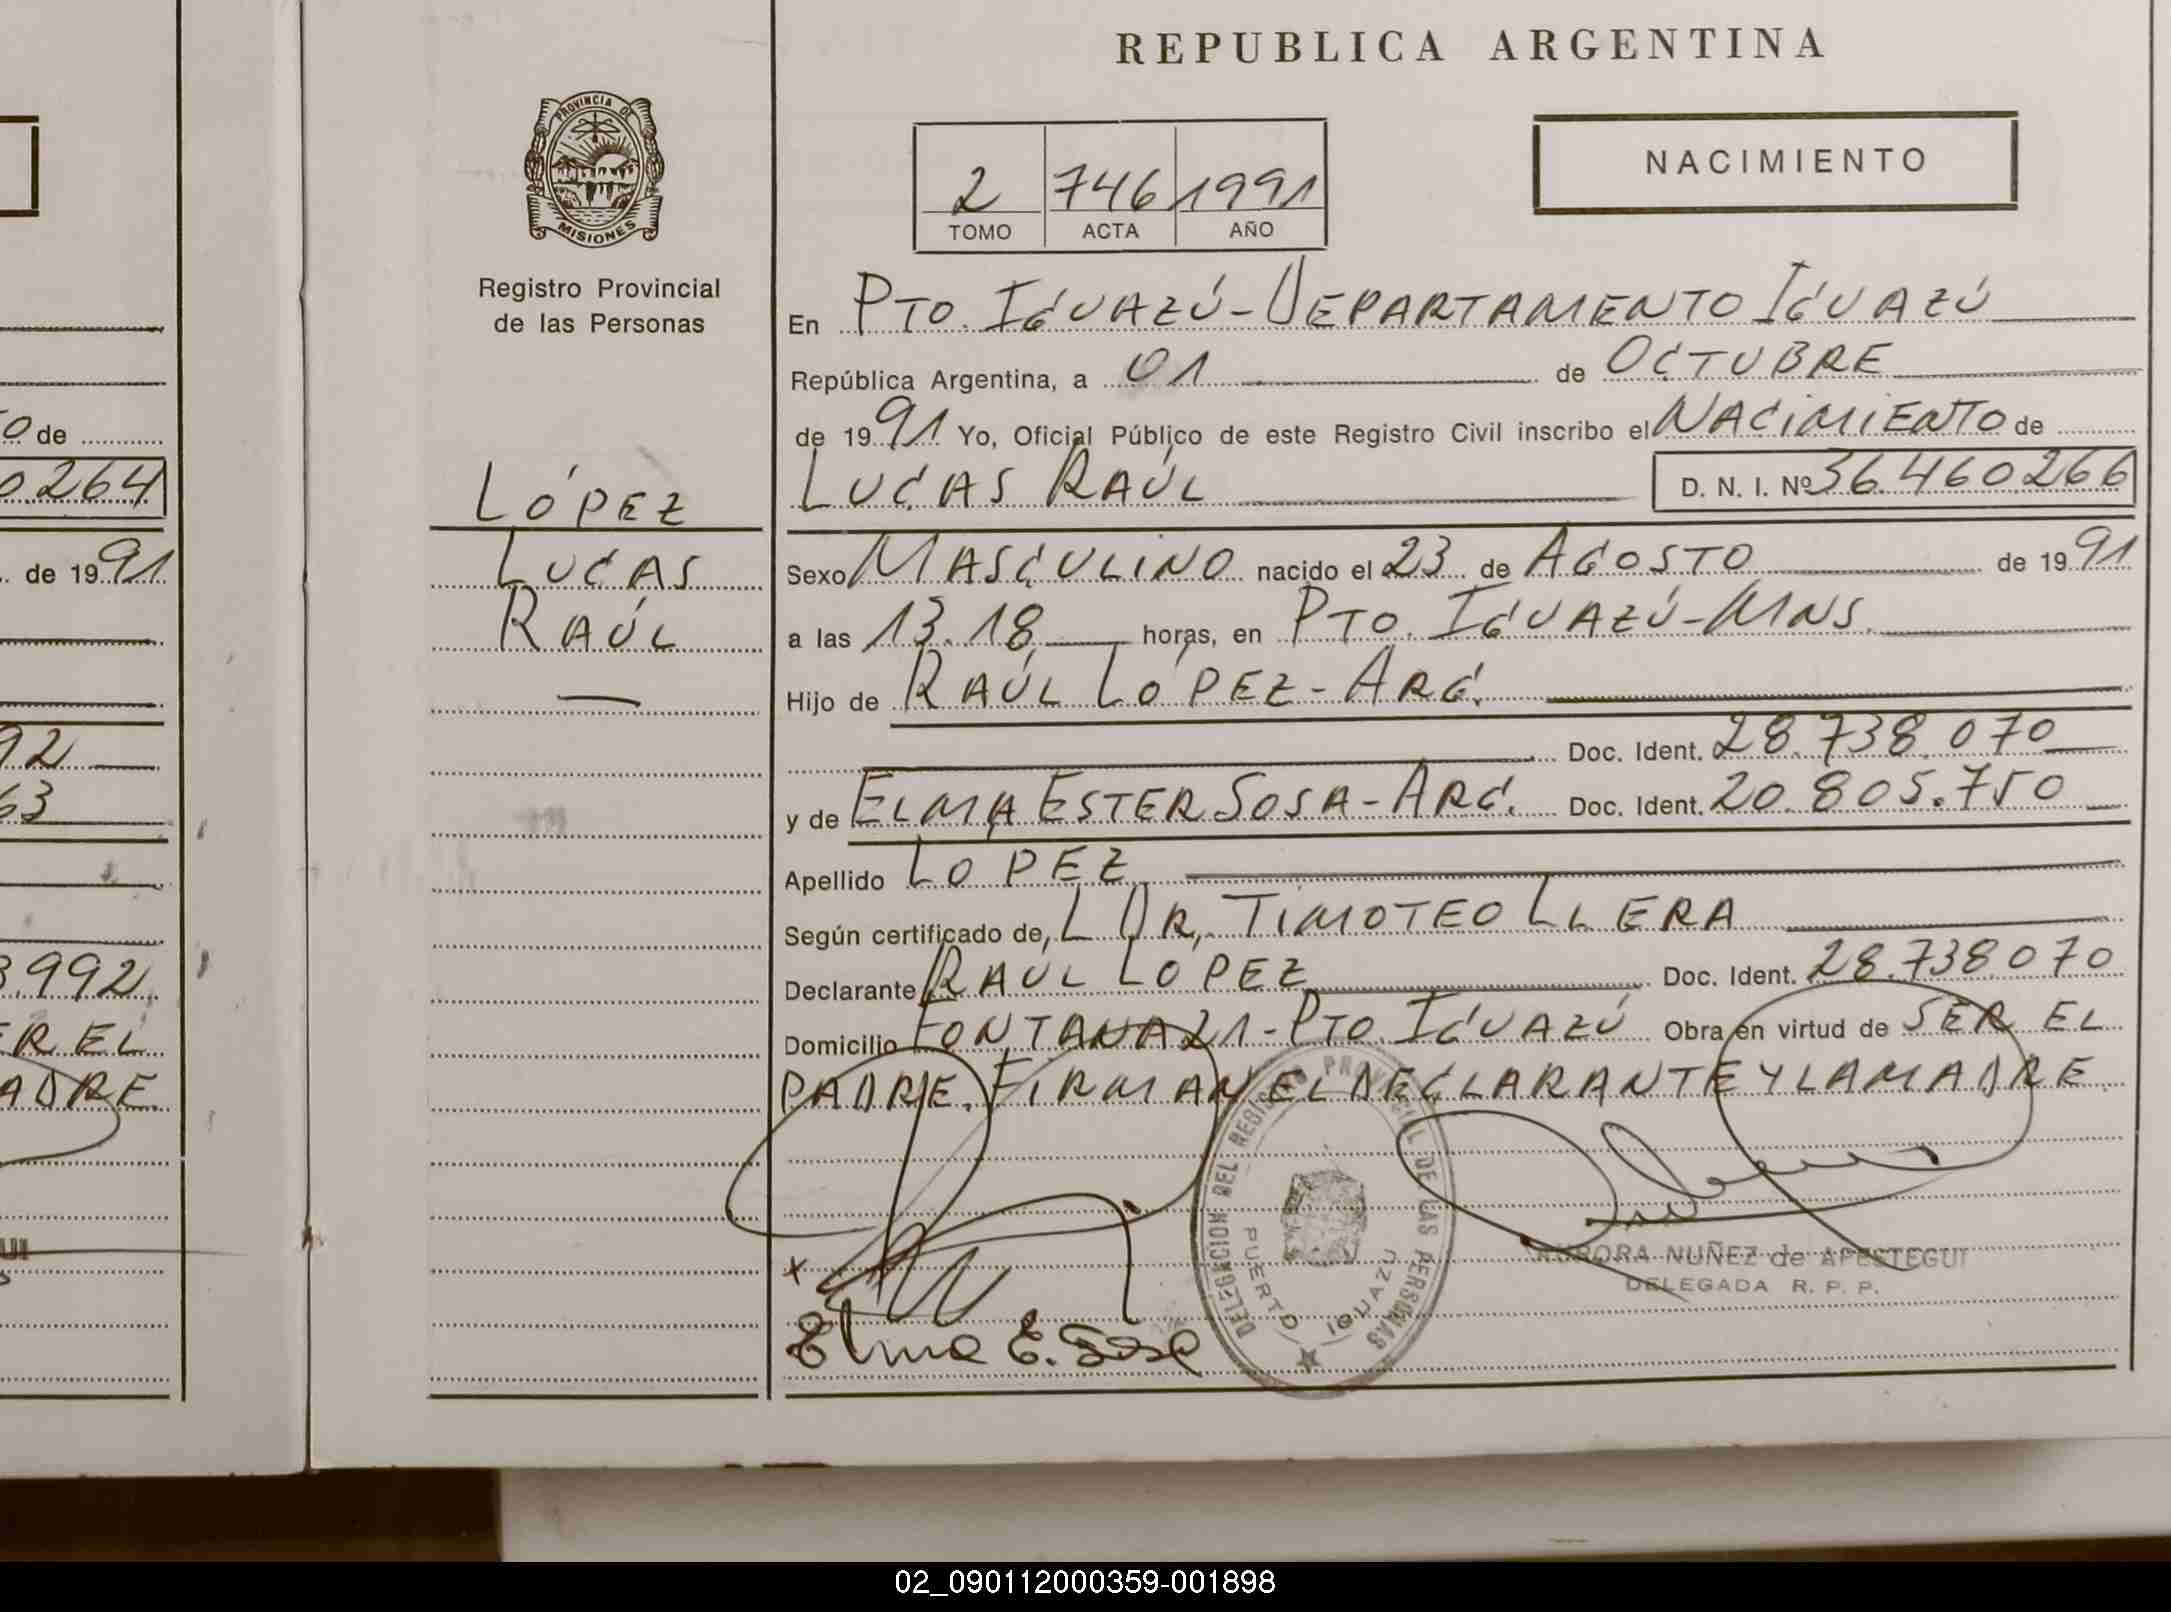 REPUBLICA ARGENTINA
PROVINCIA DE
MISIONES
Registro Provincial
de las Personas
2 746 1991
TOMO ACTA AÑO
NACIMIENTO
En PTO. IGUAZÚ - DEPARTAMENTO IGUAZÚ
República Argentina, a 01 de OCTUBRE
de 1991 Yo, Oficial Público de este Registro Civil inscribo el NACIMIENTO de
LUCAS RAÚL D. N. I. Nº 36.460.266
LÓPEZ
LUCAS
RAÚL
Sexo MASCULINO nacido el 23 de AGOSTO de 1991
a las 13.18 horas, en PTO. IGUAZÚ - MNS.
Hijo de RAÚL LÓPEZ - ARG.
Doc. Ident. 28.738.070
y de ELMA ESTER SOSA - ARG. Doc. Ident. 20.805.750
Apellido LOPEZ
Según certificado de, L DR. TIMOTEO LLERA
Declarante RAÚL LÓPEZ Doc. Ident. 28.738.070
Domicilio FONTANA 21 - PTO. IGUAZÚ Obra en virtud de SER EL
PADRE. FIRMAN EL DECLARANTE Y LA MADRE.
DELEGACION DEL REGISTRO PROVINCIAL DE LAS PERSONAS
PUERTO IGUAZU
AURORA NUÑEZ de APESTEGUI
DELEGADA R. P. P.
x
Elma E. Sosa
O de
0.264
de 1991
92
63
3.992
ER EL
ADRE.
UI
02_090112000359-001898